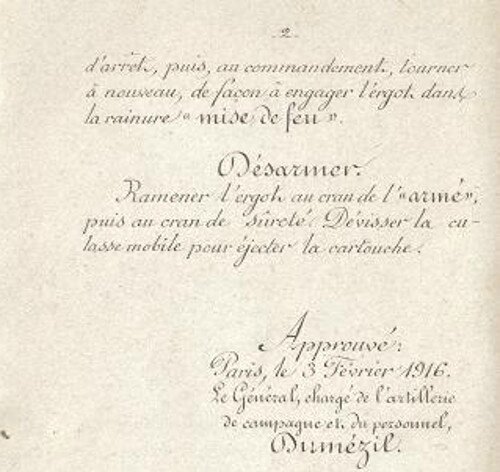 2
d'arrêt, puis, au commandement, tourner
à nouveau, de façon à engager l'ergot dans
la rainure "mise de feu".
Désarmer.
Ramener l'ergot au cran de l'"armé",
puis au cran de sûreté. Dévisser la cu-
lasse mobile pour éjecter la cartouche.
Approuvé:
Paris, le 3 Février 1916.
Le Général, chargé de l'artillerie
de campagne et du personnel,
Dumézil.